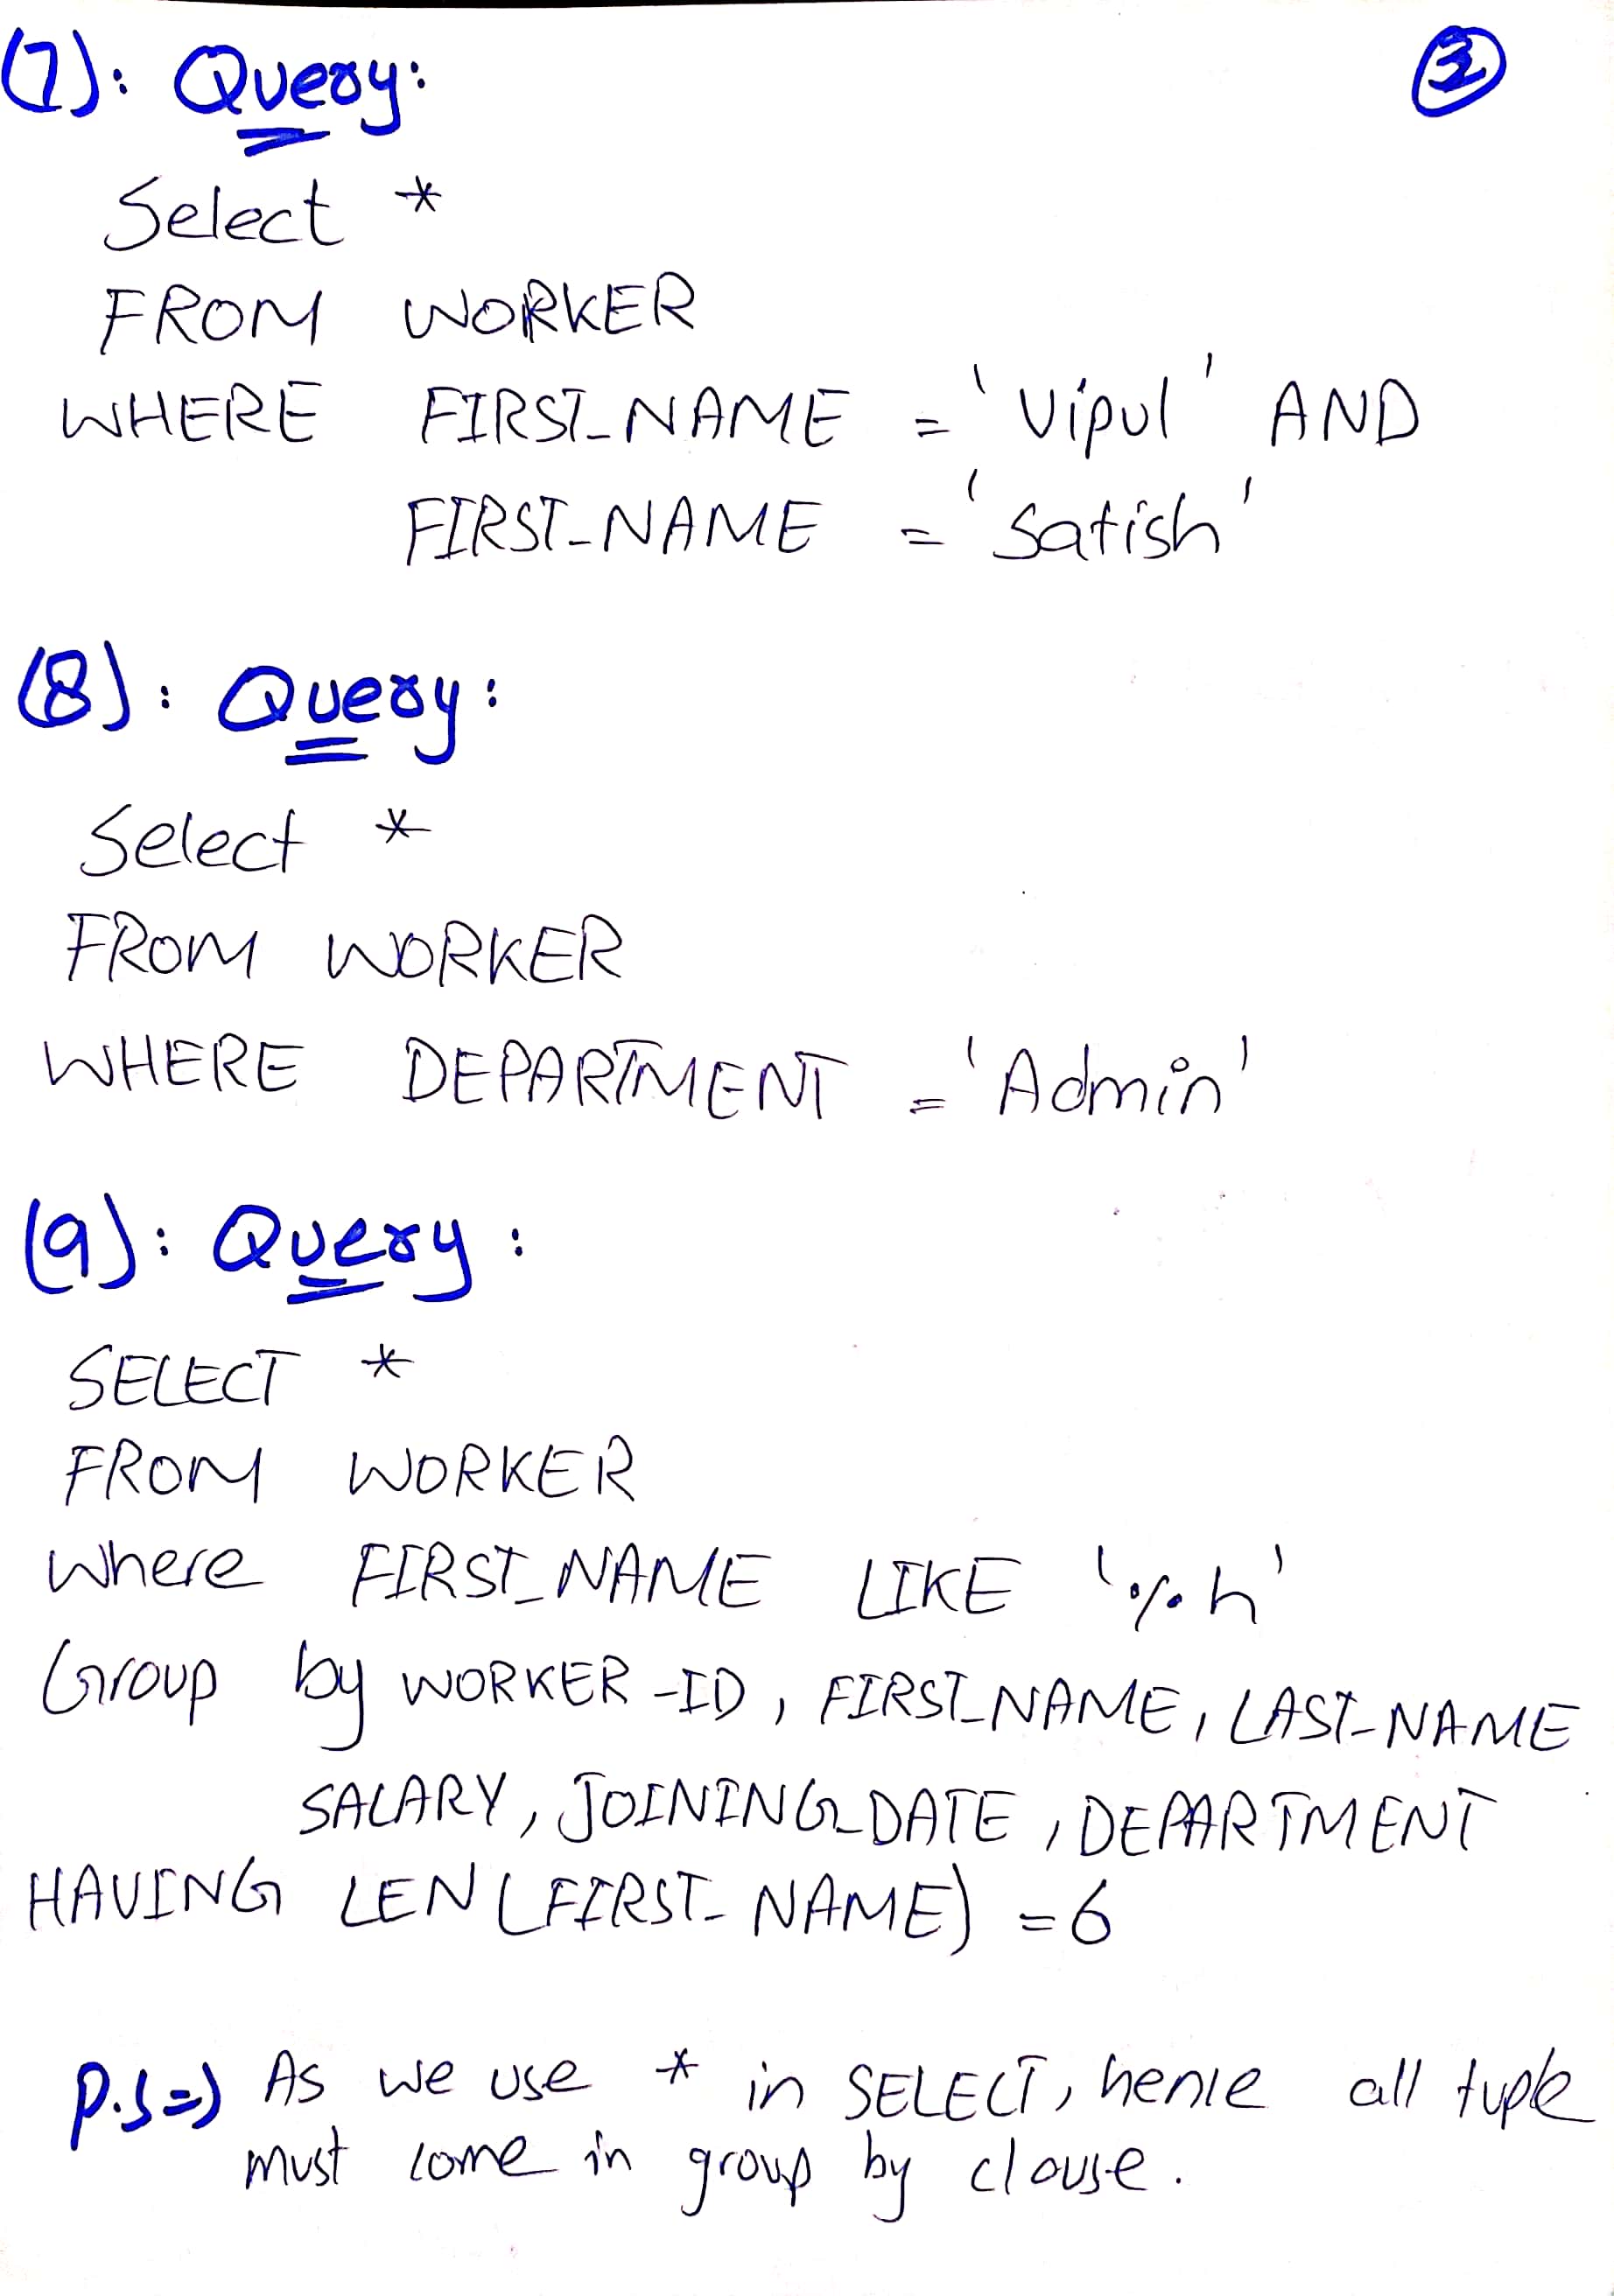 (7): Query: 3
Select *
FROM WORKER
WHERE FIRST_NAME = 'Vipul' AND
FIRST_NAME = 'Satish'
(8): Query:
Select *
FROM WORKER
WHERE DEPARTMENT = 'Admin'
(9): Query:
SELECT *
FROM WORKER
Where FIRST_NAME LIKE '%h'
Group by WORKER_ID, FIRST_NAME, LAST_NAME
SALARY, JOINING_DATE, DEPARTMENT
HAVING LEN(FIRST_NAME) = 6
P.S => As we use * in SELECT, hence all tuple
must come in group by clause.